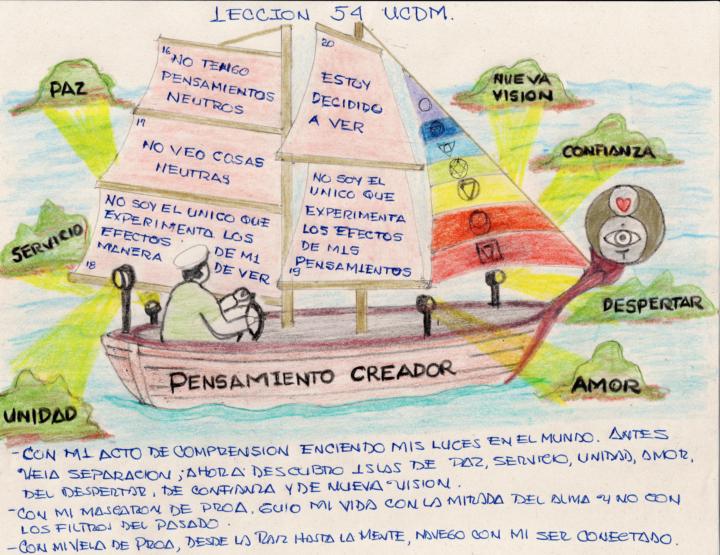 LECCION 54 UCDM.
16
NO TENGO
PENSAMIENTOS
NEUTROS
20
ESTOY
DECIDIDO
A VER
17
NO VEO COSAS
NEUTRAS
NO SOY EL UNICO QUE
EXPERIMENTA LOS
EFECTOS DE MI
MANERA DE VER
18
NO SOY EL
UNICO QUE
EXPERIMENTA
LOS EFECTOS
DE MIS
PENSAMIENTOS
19
PAZ
SERVICIO
UNIDAD
NUEVA
VISION
CONFIANZA
DESPERTAR
AMOR
PENSAMIENTO CREADOR
-CON MI ACTO DE COMPRENSION ENCIENDO MIS LUCES EN EL MUNDO. ANTES
VEIA SEPARACION, AHORA DESCUBRO ISLAS DE PAZ, SERVICIO, UNIDAD, AMOR,
DEL DESPERTAR, DE CONFIANZA Y DE NUEVA VISION.
-CON MI MASCARON DE PROA, GUIO MI VIDA CON LA MIRADA DEL ALMA Y NO CON
LOS FILTROS DEL PASADO.
-CON MI VELA DE PROA, DESDE LA RAIZ HASTA LA MENTE, NAVEGO CON MI SER CONECTADO.